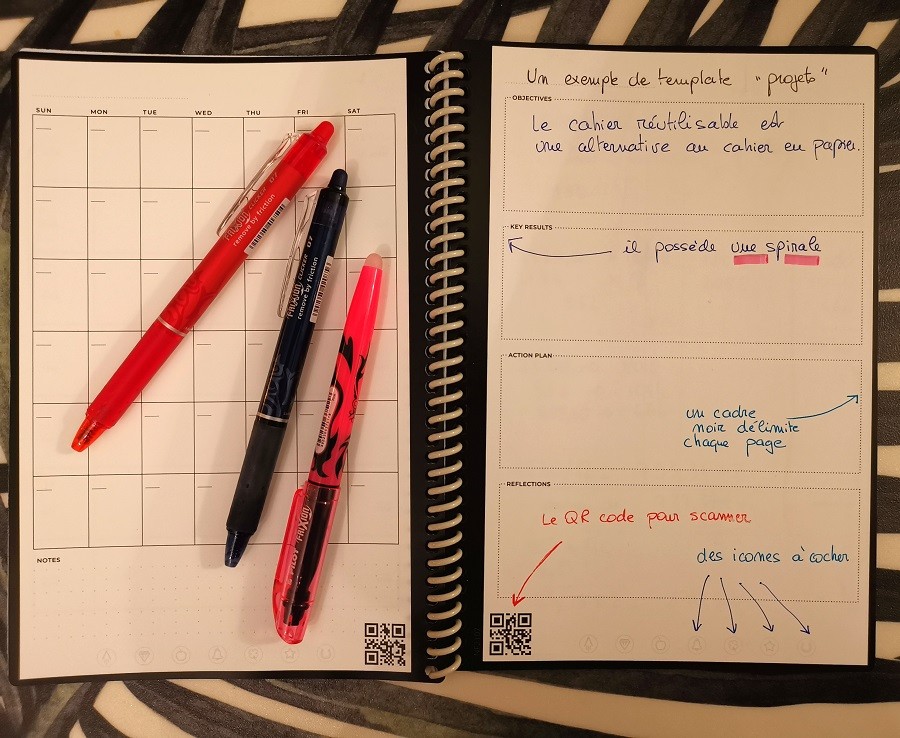 SUN MON TUE WED THU FRI SAT
FRIXION CLICKER 07
remove by friction
FRIXION CLICKER 07
remove by friction
PILOT FRIXION
NOTES
Un exemple de template "projets"
OBJECTIVES
Le cahier réutilisable est
une alternative au cahier en papier.
KEY RESULTS
il possède une spirale
ACTION PLAN
un cadre
noir délimite
chaque page
REFLECTIONS
Le QR code pour scanner
des icones à cocher